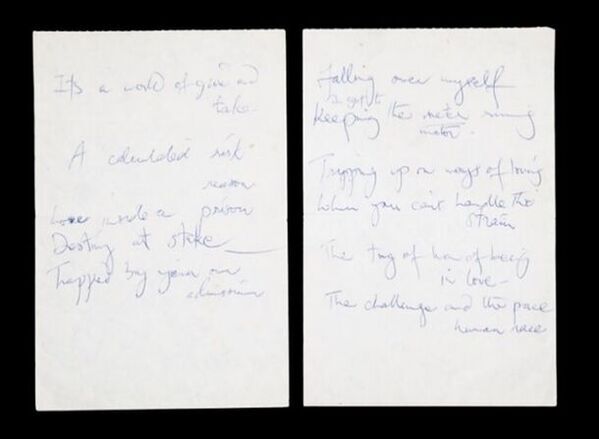 It's a world of give and
take
A calculated risk
reason
inside a prison
Destiny at stake
Trapped by your own
admission
Falling over myself
I get
Keeping the meter running
motor
Tripping up on ways of loving
When you can't handle the
strain
The of of being
in love
The challenge and the pace
human race